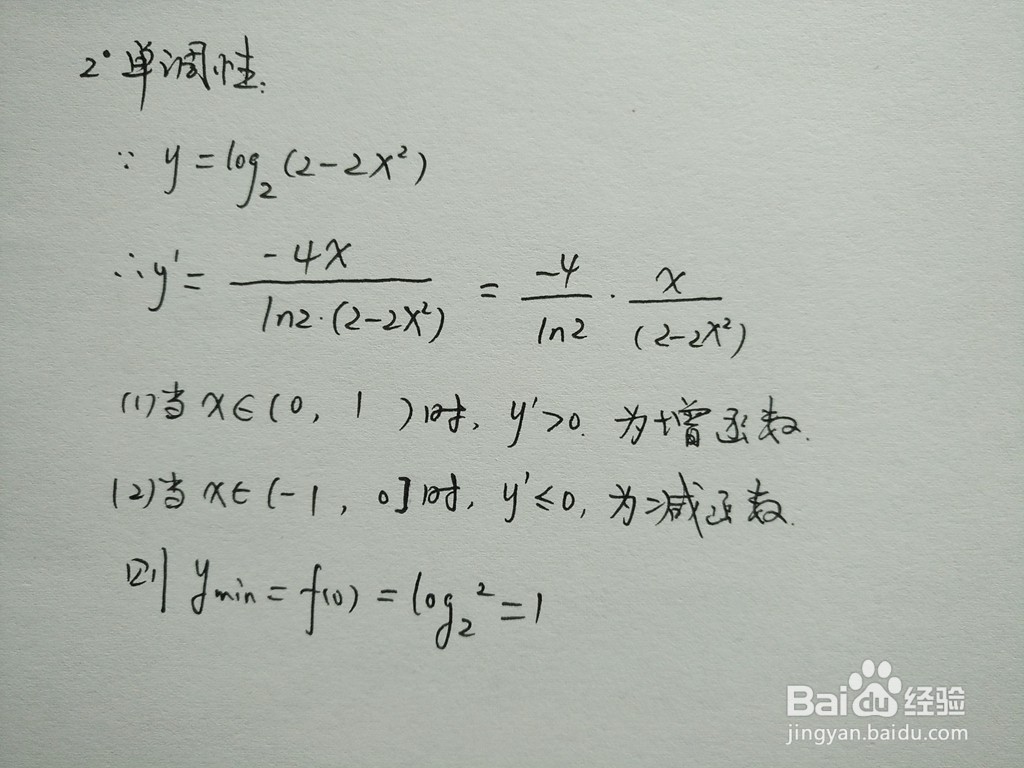 2° 单调性:
∵ y = log₂(2-2x²)
∴ y' = -4x / ln2·(2-2x²) = -4/ln2 · x/(2-2x²)
(1)当 x∈(0, 1)时, y'>0. 为增函数.
(2)当 x∈(-1, 0]时, y'≤0, 为减函数.
则 y min = f(0) = log₂² = 1
Baidu经验
jingyan.baidu.com